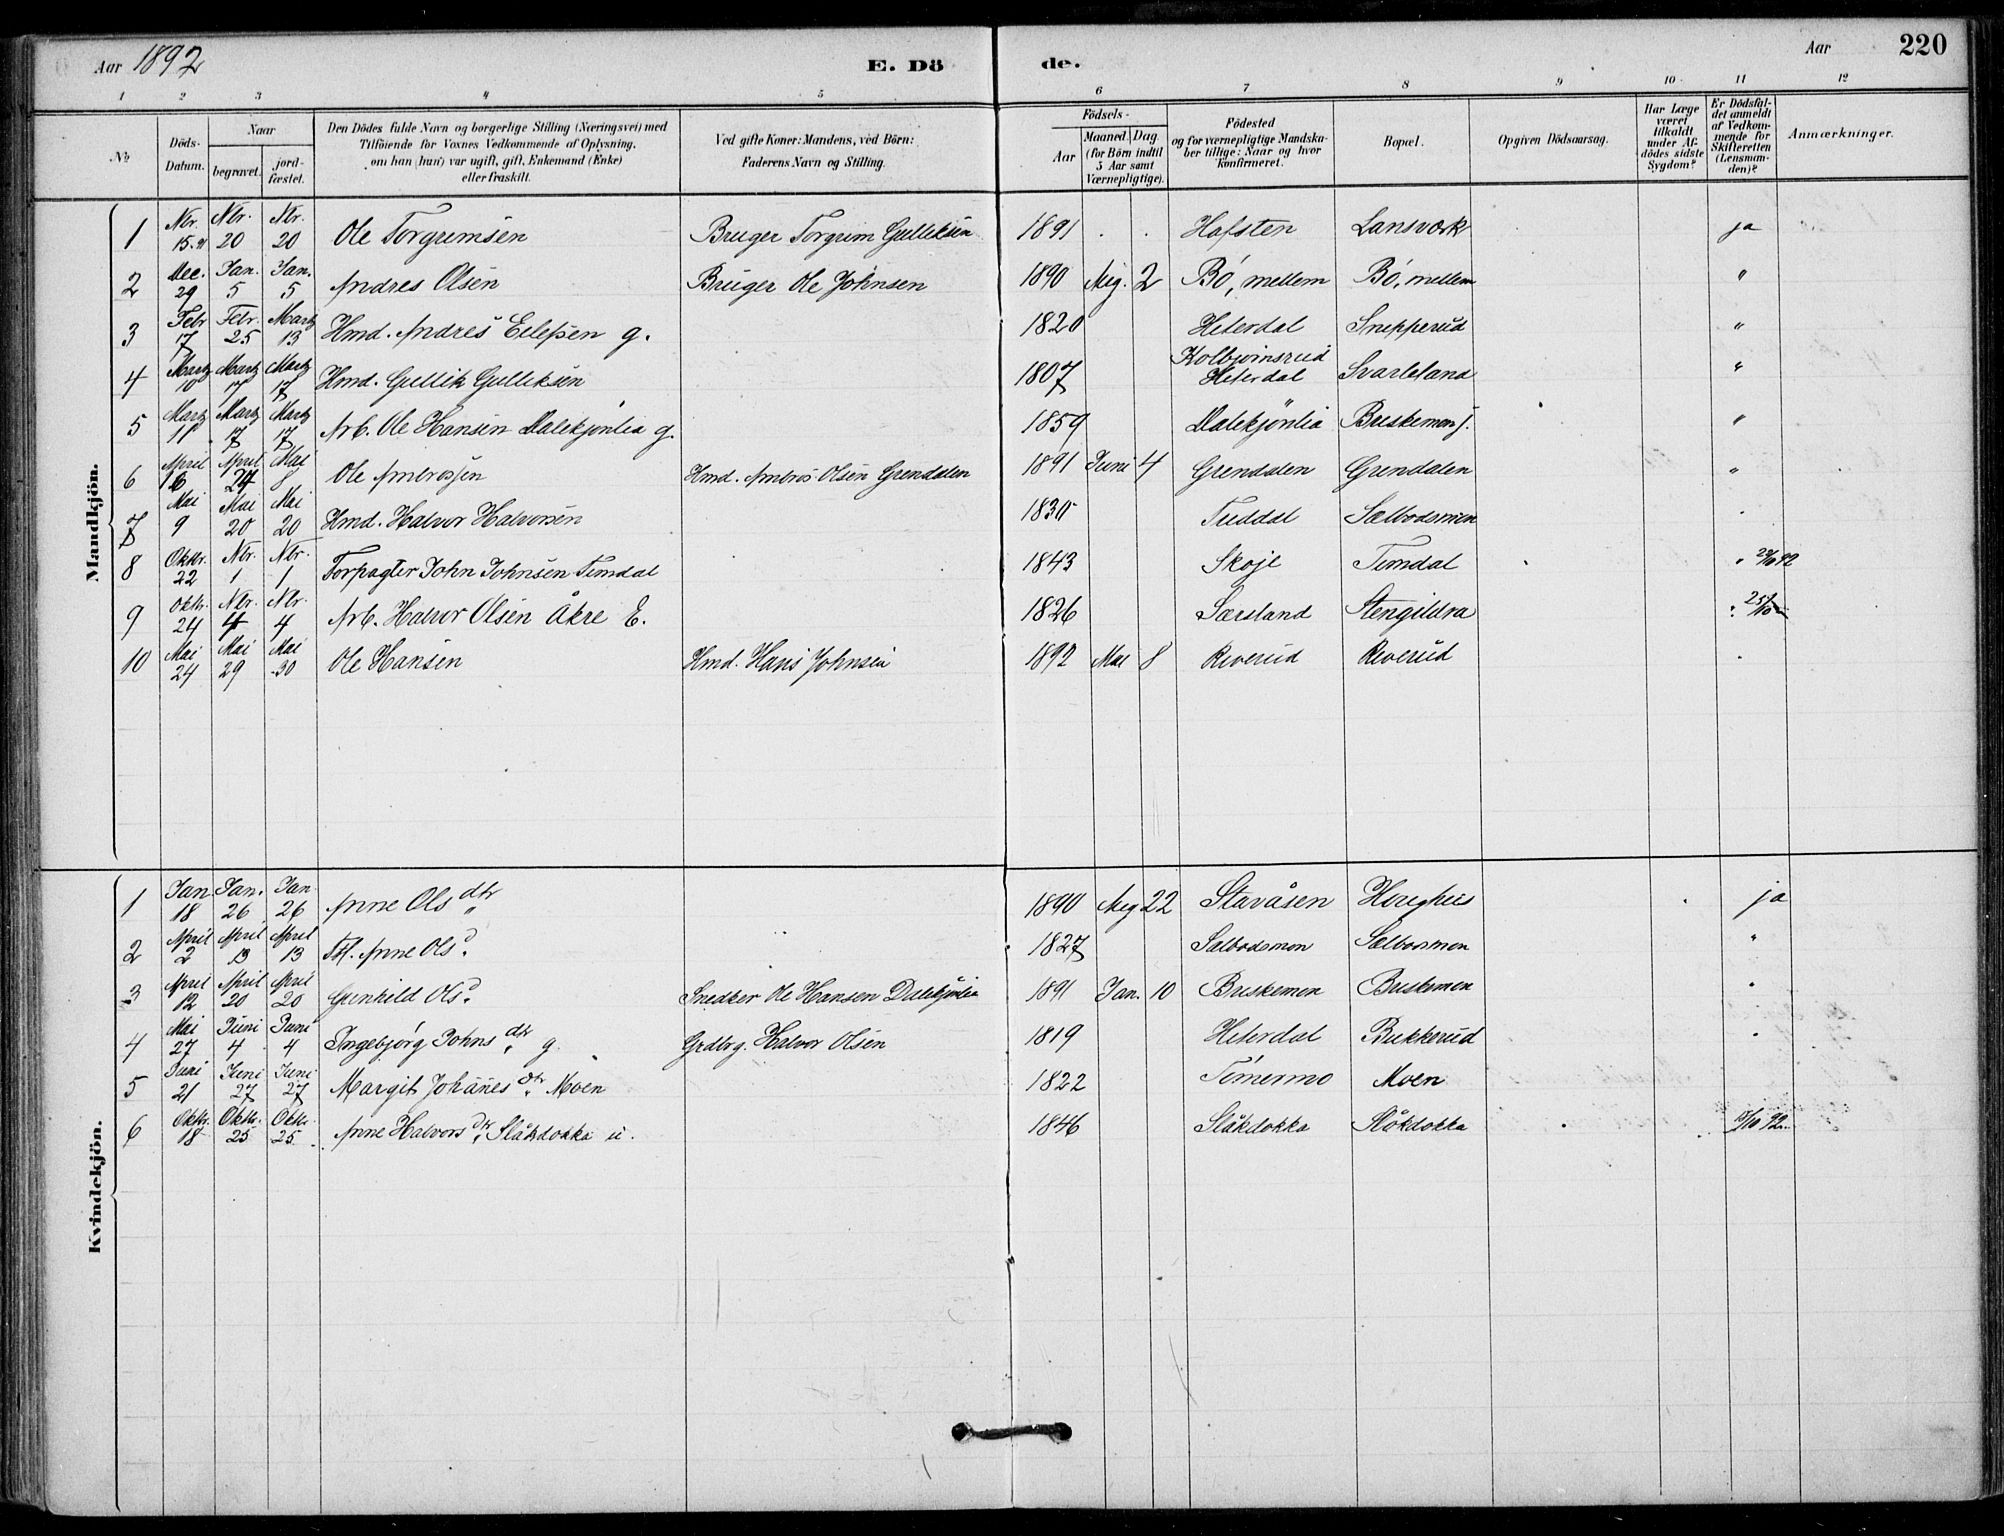 Aar 1892 E. Dö de. Aar 220
1 2 3 4 5 6 7 8 9 10 11 12
No
Döds-
Datum.
Naar
begravet.
jord-
fæstet.
Den Dödes fulde Navn og borgerlige Stilling (Næringsvei) med
Tilföiende for Voxnes Vedkommende af Oplysning,
om han (hun) var ugift, gift, Enkemand (Enke)
eller fraskilt.
Ved gifte Koner: Mandens, ved Börn:
Faderens Navn og Stilling.
Födsels-
Aar
Maaned. Dag.
(for Börn indtil
5 Aar samt
Værnepligtige).
Födested
og for værnepligtige Mandska-
ber tillige: Naar og hvor
konfirmeret.
Bopæl.
Opgiven Dödsaarsag.
Har Læge
været
tilkaldt
under Af-
dödes sidste
Sygdom?
Er Dödsfal-
det anmeldt
af Vedkom-
mende for
Skifteretten
(Lensman-
den)?
Anmærkninger.
Mandkjön.
1 Nbr. 15. 91 Nbr. 20 Nbr. 20 Ole Torgrimsen Bruger Torgrim Gulliksen 1891 . . Hafsten Lansværk ja
2 Dec. 29 Jan. 5 Jan. 5 Andres Olsen Bruger Ole Johnsen 1890 Aug. 2 Bö, mellem Bö, mellem "
3 Febr 17 Febr. 25 Martz 13 Hmd. Andres Eilefsen g. 1820 Heterdal Snepperud "
4 Martz 10 Martz 17 Martz 17 Hmd. Gullik Gulliksen 1807 Kolbjörnsrud Heterdal Svarteland "
5 Martz 11 Martz 17 Martz 17 Arb. Ole Hansen Dalekjönlia g. 1859 Dalekjönlia Briskemon "
6 April 16 April 24 Mai 8 Ole Ambrossen Hmd. Ambros Olsen Grendalen 1891 Juni 4 Grendalen Grendalen "
7 Mai 9 Mai 20 Mai 20 Hmd. Halvor Halvorsen 1830 Tuddal Sælbodsmon "
8 Oktbr. 22 Nbr. 1 Nbr. 1 Forpagter John Johnsen Temdal 1843 Skoje Temdal "
9 Oktbr. 24 Nbr. 4 Nbr. 4 Arb. Halvor Olsen Åkre E. 1826 Særsland Stengildra "
10 Mai 24 Mai 29 Mai 30 Ole Hansen Hmd. Hans Johnsen 1892 Mai 8 Riverud Riverud "
Kvindekjön.
1 Jan 18 Jan. 26 Jan 26 Anne Ols dtr 1890 Aug 22 Stavåsen Haughus ja
2 April 2 April 13 April 13 Anne Olsd. 1827 Sælbodsmon Sælbosmon "
3 April 12 April 20 April 20 Gunhild Olsd. Snedker Ole Hansen Dalekjönlia 1891 Jan. 10 Briskemon Briskemon "
4 Mai 27 Juni 4 Juni 4 Ingebjörg Johns dtr g. Grdbrg. Halvor Olsen 1819 Heterdal Bukkerud "
5 Juni 21 Juni 27 Juni 27 Margit Johanes dtr Moen 1822 Tömermo Moen
6 Oktbr. 18 Oktbr. 25 Oktbr. 25 Anne Halvors dtr Slåkdokka u. 1846 Slåkdokka Slåkdokka